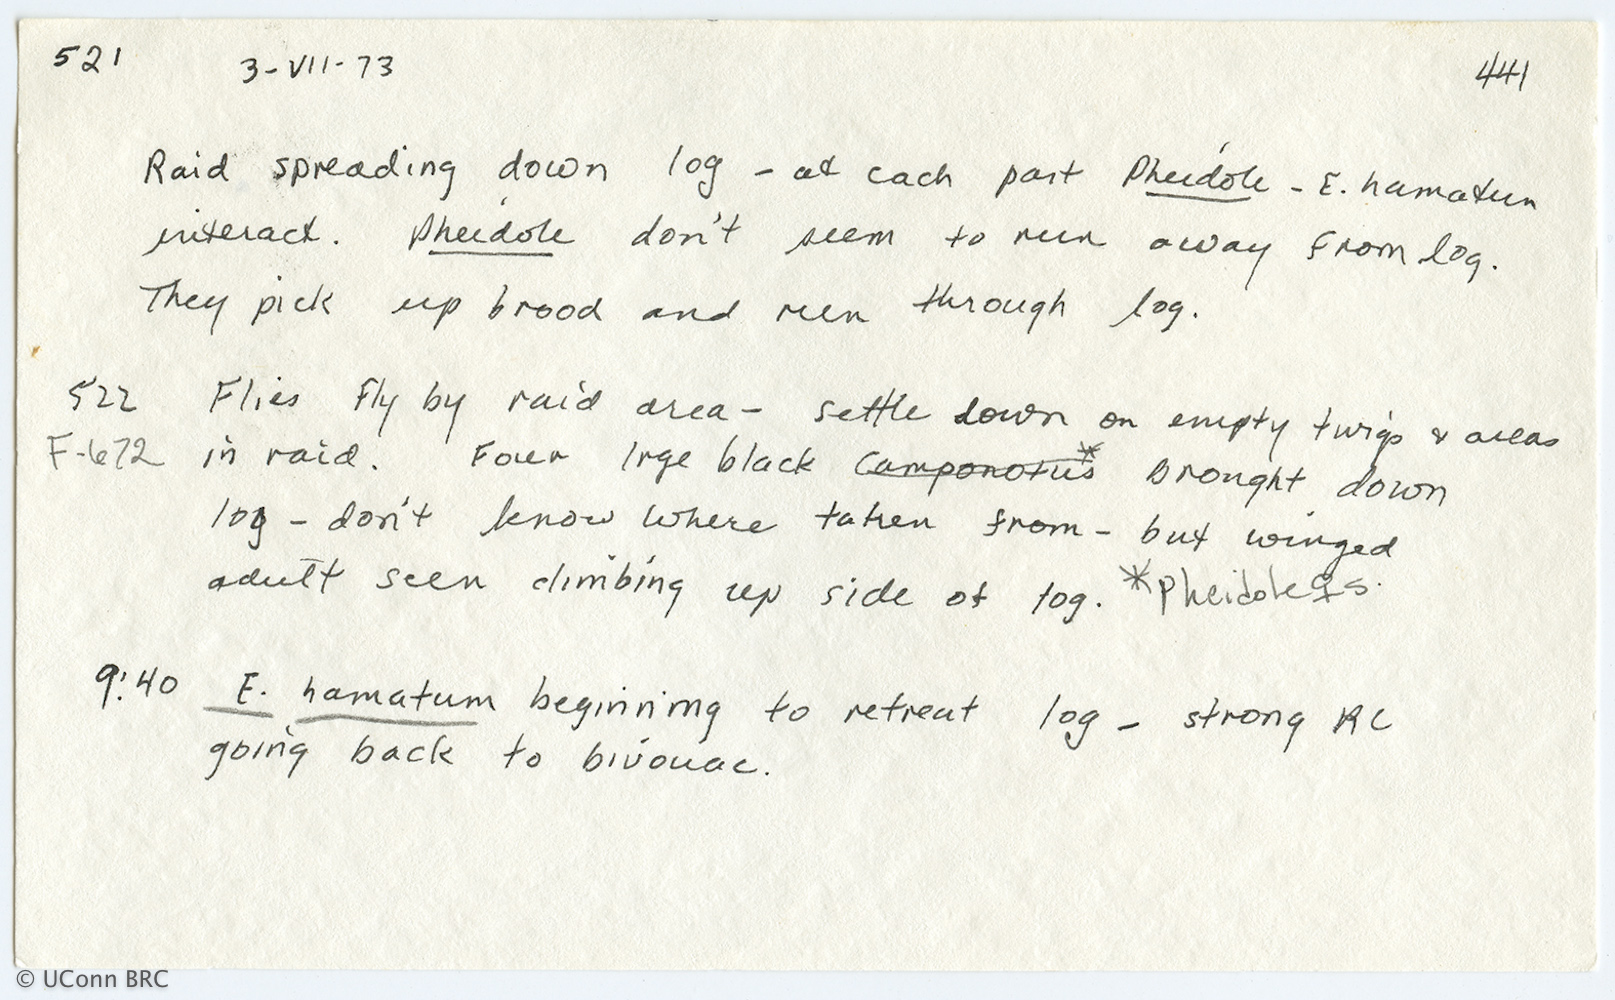 521 3-VII-73 441
Raid spreading down log - at each part Pheidole - E. hamatum
interact. Pheidole don't seem to run away from log.
They pick up brood and run through log.
522 Flies fly by raid area - settle down on empty twigs & areas
F-672 in raid. Four lrge black Camponotus* brought down
log - don't know where taken from - but winged
adult seen climbing up side of log. *Pheidole ♀s.
9:40 E. hamatum beginning to retreat log - strong RC
going back to bivouac.
© UConn BRC